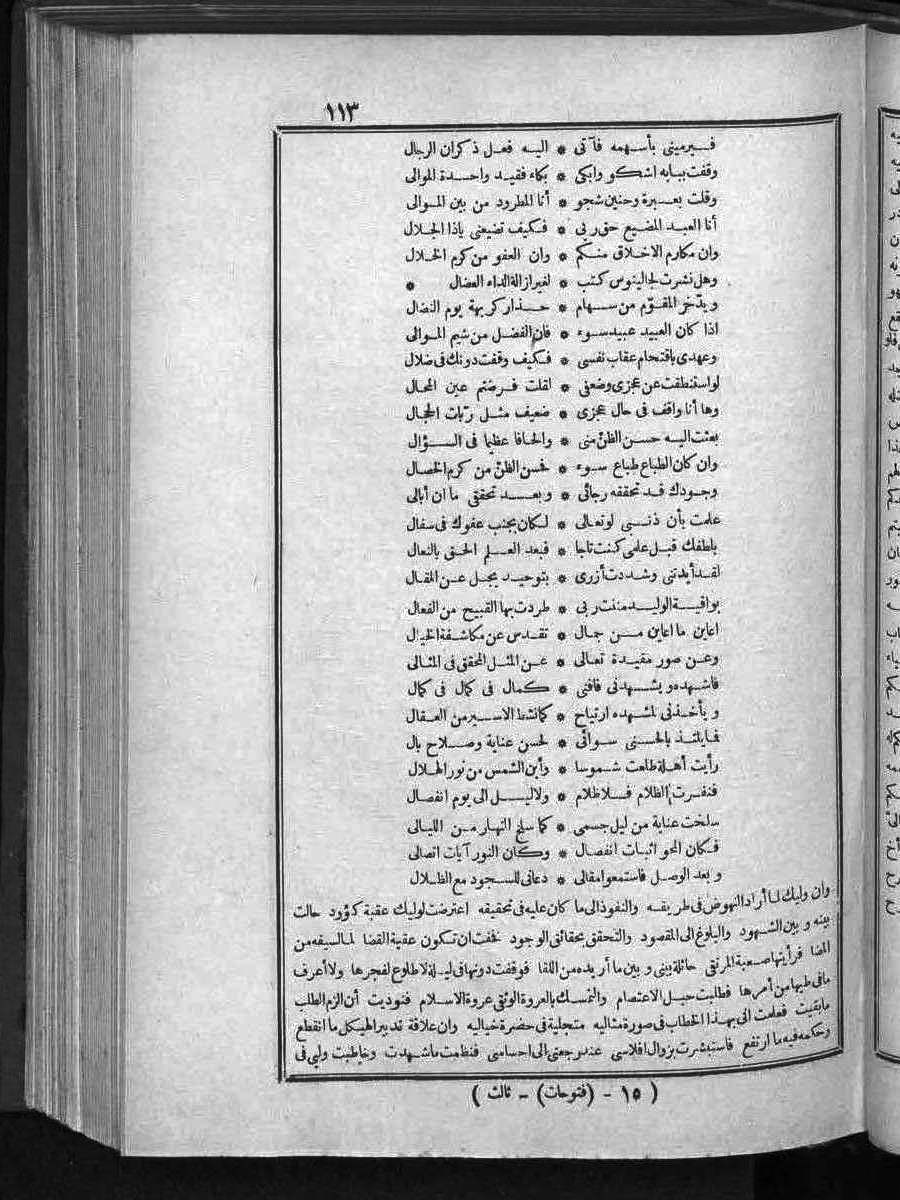 ١١٣
فيرميني بأسهمه فآتى * اليه فعل ذكران الرجال
وقفت ببابه اشكو وابكى * بكاء فقيد واحدة الموالى
وقلت بعبرة وحنين شجو * أنا المطرود من بين الموالى
أنا العبد المضيع حق ربى * فكيف تضيعنى ياذا الجلال
وان مكارم الاخلاق منكم * وان العفو من كرم الخلال
وهل نشرت لجالينوس كتب * لغير ازالة الداء العضال *
ويدّخر المقوّم من سهام * حذار كريهة يوم النضال
اذا كان العبيد عبيد سوء * فان الفضل من شيم الموالى
وعهدى باقتحام عقاب نفسى * فكيف وقفت دونك فى ضلال
لو استنطقت عن عجزى وضعفى * لقلت فرضتم عين المحال
وها أنا واقف فى حال عجزى * ضعيف مثل ربات الحجال
بعثت اليه حسن الظنّ منى * والحافا عظيما فى السؤال
وان كان الطباع طباع سوء * فحسن الظنّ من كرم الخصال
وجودك قد تحققه رجائى * وبعد تحققى ما ان أبالى
علمت بأن ذنبى لو تعالى * لكان بجنب عفوك فى سفال
بلطفك قبل علمى كنت تاجا * فبعد العلم الحق بالنعال
لقد أيدتنى وشددت أزرى * بتوحيد يجل عن المقال
بواقية الوليد مننت ربى * طردت بها القبيح من الفعال
اعاين ما اعاين من جمال * تقدس عن مكاشفة الخيال
وعن صور مقيدة تعالى * عن المثل المحقق فى المثالى
فاشهده ويشهدنى فافنى * كمال فى كمال فى كمال
ويأخذنى لمشهده ارتياح * كمانشط الاسير من العقال
فما يلتذ بالحسنى سوائى * لحسن عناية وصلاح بال
رأيت أهلة طلعت شموسا * وأين الشمس من نور الهلال
فنفرت الظلام فلا ظلام * ولا ليل الى يوم انفصال
سلخت عناية من ليل جسمى * كما سلخ النهار من الليالى
فكان المحو اثبات انفصال * وكان النور آيات اتصالى
وبعد الوصل فاستمعوا مقالى * دعانى للسجود مع الظلال
وان وليك لما أراد النهوض فى طريقه والنفوذ الى ما كان عليه فى تحقيقه اعترضت لوليك عقبة كؤود حالت
بينه وبين الشهود والبلوغ الى المقصود والتحقق بحقائق الوجود فخفت ان تكون عقبة القضا لما لسيفه من
المضا فرأيتها صعبة المرتقى حائلة بينى وبين ما أريده من اللقا فوقفت دونها فى ليلة لا طلوع لفجرها ولا أعرف
مافى طيها من أمرها فطلبت حبل الاعتصام والتمسك بالعروة الوثقى عروة الاسلام فنوديت أن الزم الطلب
مابقيت فعلمت انى بهذا الخطاب فى صورة مثاليه متجلية فى حضرة خياليه وان علاقة تدبير الهيكل ما انقطع
وحكمه فيه ما ارتفع فاستبشرت بزوال افلاسى عند رجعتى الى احساسى فنظمت ما شهدت وخاطبت وليى فى
( ١٥ - (فتوحات) - ثالث )